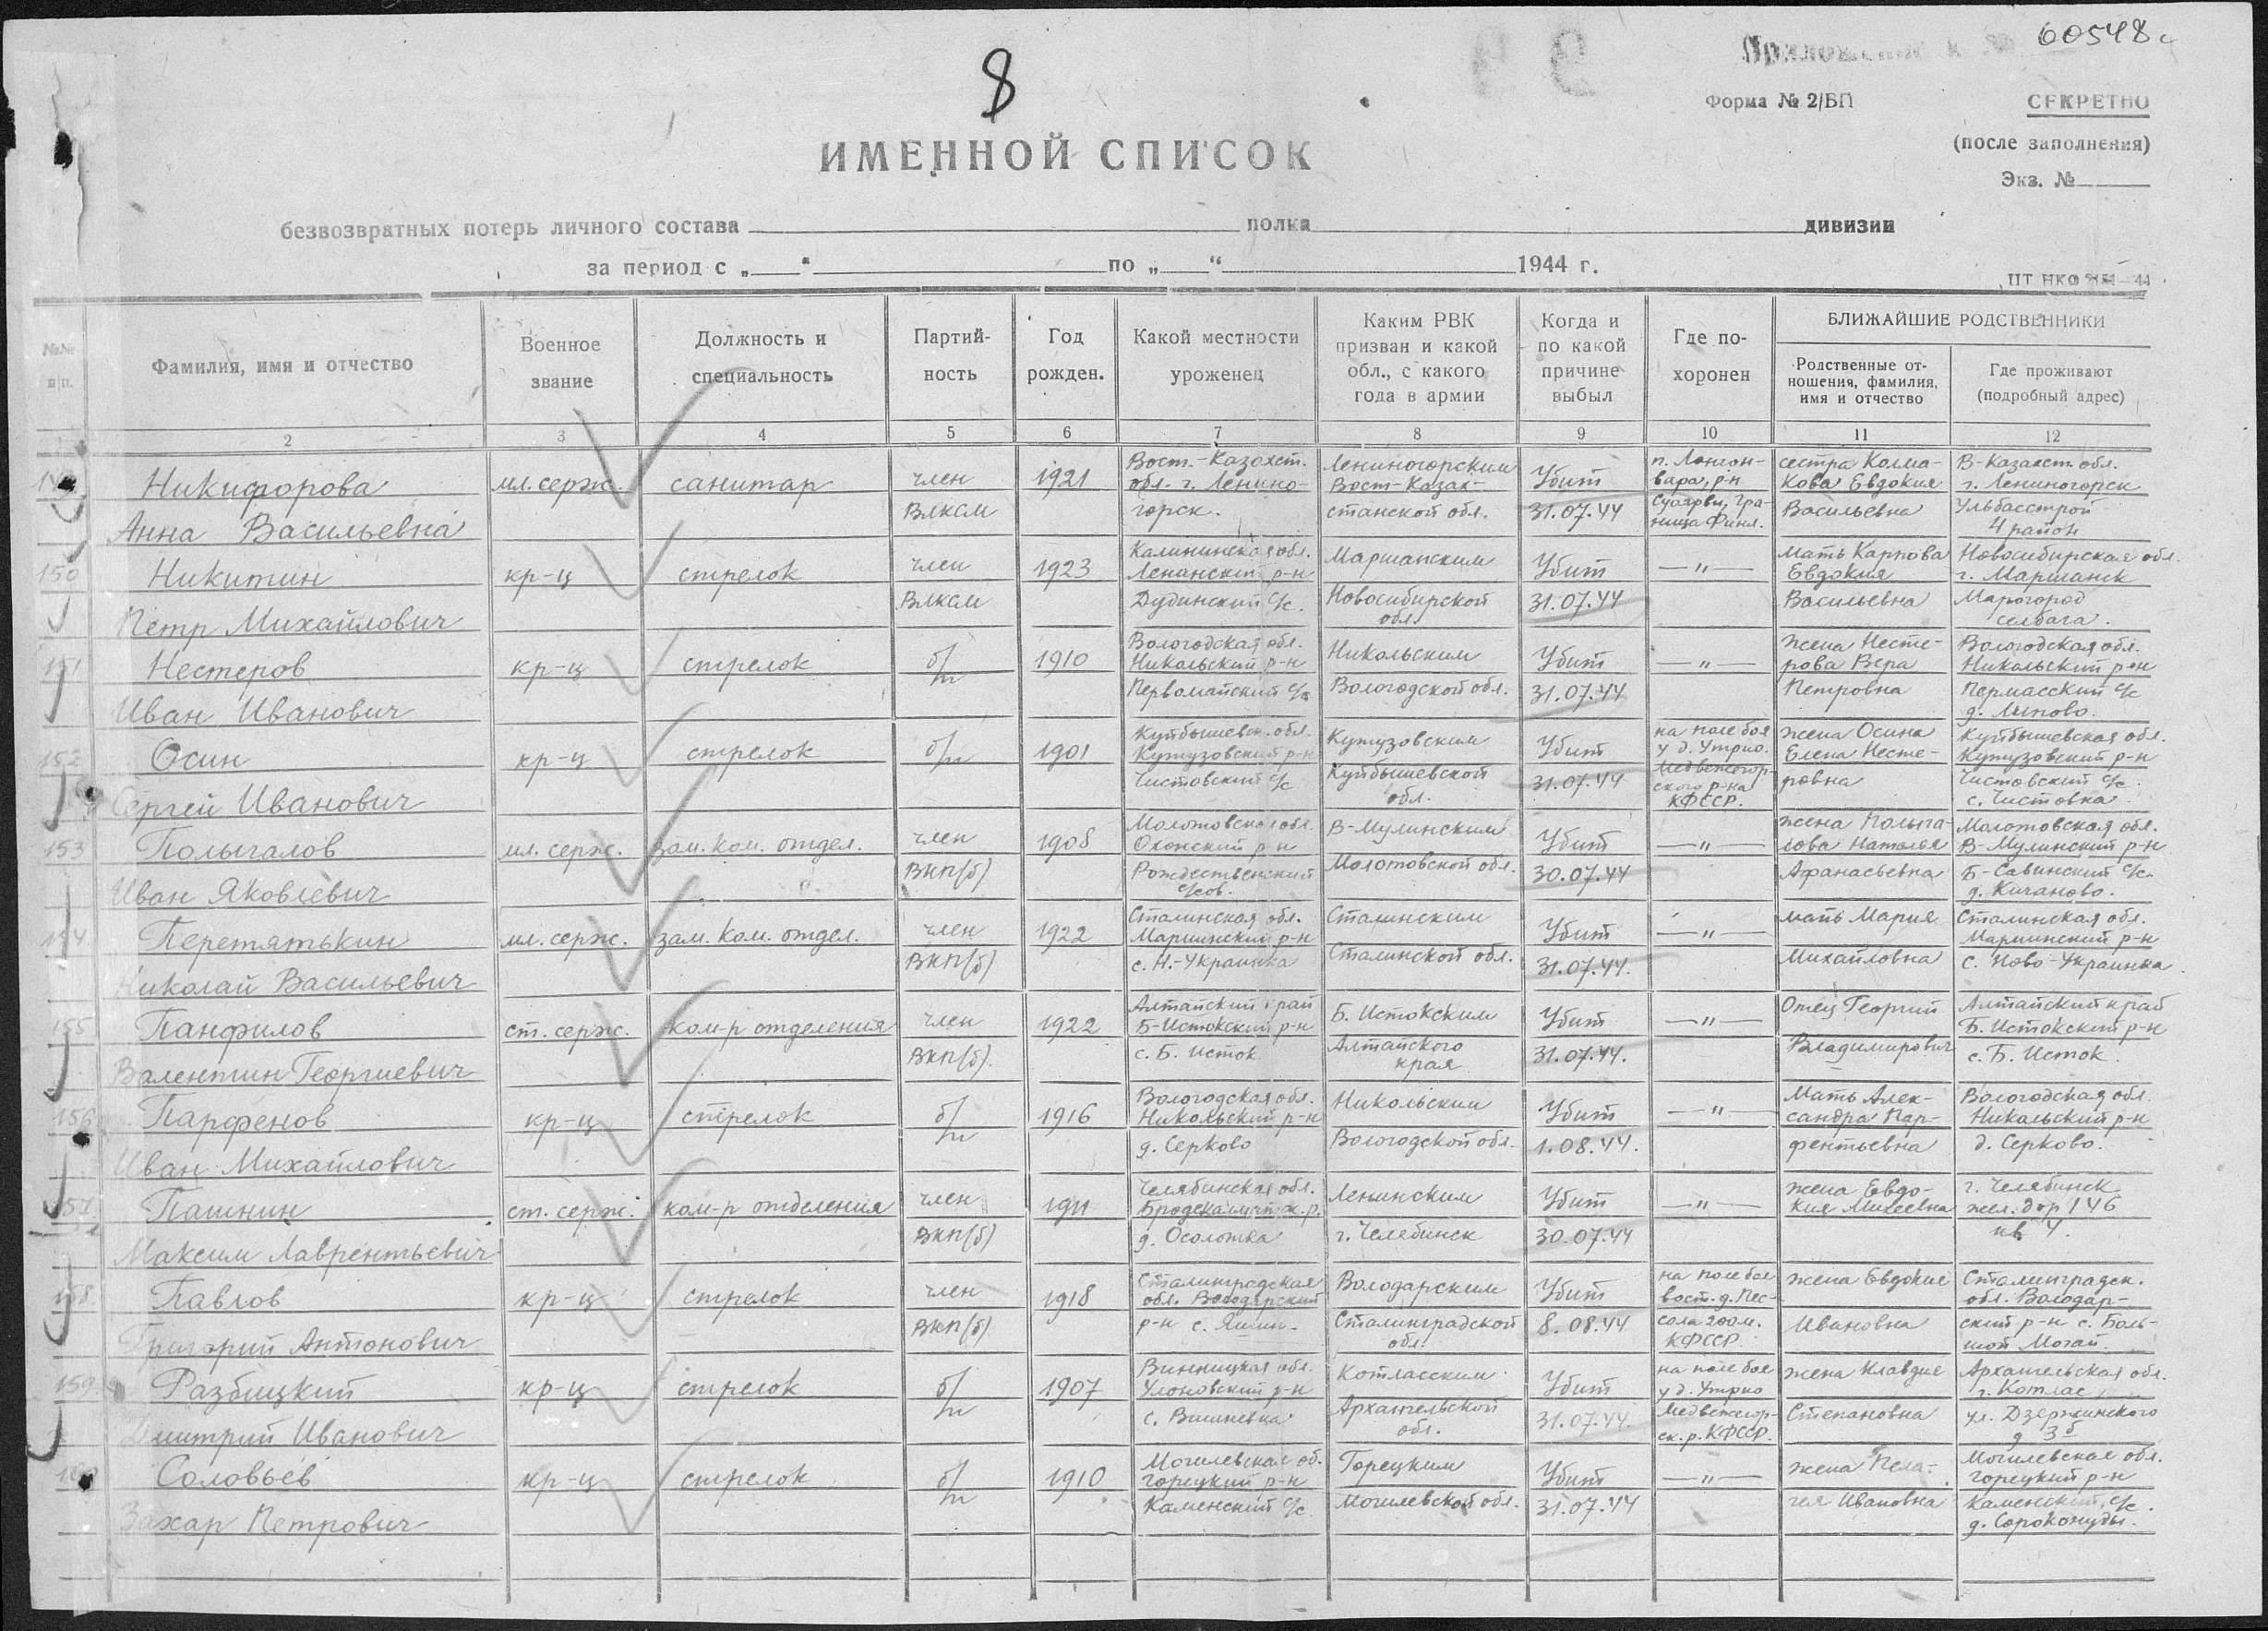 60548с
8
Приложение к №
Форма № 2/БП
СЕКРЕТНО
(после заполнения)
Экз. №
ИМЕННОЙ СПИСОК
безвозвратных потерь личного состава полка дивизии
за период с „ “ по „ “ 1944 г.
№№ п/п.
Фамилия, имя и отчество
Военное звание
Должность и специальность
Партий-
ность
Год рожден.
Какой местности уроженец
Каким РВК
призван и какой
обл., с какого
года в армии
Когда и
по какой
причине
выбыл
Где по-
хоронен
БЛИЖАЙШИЕ РОДСТВЕННИКИ
Родственные от-
ношения, фамилия,
имя и отчество
Где проживают
(подробный адрес)
2 3 4 5 6 7 8 9 10 11 12
Никифорова
Анна Васильевна
мл. серж.
санитар
член
ВЛКСМ
1921
Вост.-Казахст.
обл. г. Ленино-
горск.
Лениногорским
Вост-Казах-
станской обл.
Убит
31.07.44
п. Лонгон-
вара, р-н
Суоярви, гра-
ница Финл.
сестра Колма-
кова Евдокия
Васильевна
В-Казахст. обл.
г. Лениногорск
Ульбасстрой
4 район
150
Никитин
Петр Михайлович
кр-ц
стрелок
член
ВЛКСМ
1923
Калининская обл.
р-н
Дудинский с/с.
Маршанским
Новосибирской
обл.
Убит
31.07.44
— " —
мать Карпова
Евдокия
Васильевна
Новосибирская обл.
г. Маршанск
151
Нестеров
Иван Иванович
кр-ц
стрелок
б/п
1910
Вологодская обл.
Никольский р-н
Первомайский с/с
Никольским
Вологодской обл.
Убит
31.07.44
— " —
жена Несте-
рова Вера
Петровна
Вологодская обл.
Никольский р-н
Пермасский с/с
д. Липово.
152
Осин
Сергей Иванович
кр-ц
стрелок
б/п
1901
Куйбышевск. обл.
Кутузовский р-н
Чистовский с/с
Кутузовским
Куйбышевской
обл.
Убит
31.07.44
на поле боя
у д. Утрио.
Медвежегор-
ского р-на
КФССР.
жена Осина
Елена Несте-
ровна
Куйбышевская обл.
Кутузовский р-н
Чистовский с/с.
с. Чистовка.
153
Полыгалов
Иван Яковлевич
мл. серж.
зам. ком. отдел.
член
ВКП(б)
1908
Молотовская обл.
Оханский р-н
Рождественский
с/сов.
В-Мулинским
Молотовской обл.
Убит
30.07.44
— " —
жена Полыга-
лова Наталья
Афанасьевна
Молотовская обл.
В-Мулинский р-н
Б-Савинский с/с.
д. Кичаново.
154
Перетятькин
Николай Васильевич
мл. серж.
зам. ком. отдел.
член
ВКП(б)
1922
Сталинская обл.
Марьинский р-н
с. Н.-Украинка
Сталинским
Сталинской обл.
Убит
31.07.44.
— " —
мать Мария
Михайловна
Сталинская обл.
Марьинский р-н
с. Ново-Украинка.
155
Панфилов
Валентин Георгиевич
ст. серж.
ком-р отделения
член
ВКП(б).
1922
Алтайский край
Б-Истокский р-н
с. Б. Исток
Б. Истокским
Алтайского
края
Убит
31.07.44.
— " —
Отец Георгий
Владимирович
Алтайский край
Б. Истокский р-н
с. Б. Исток.
156
Парфенов
Иван Михайлович
кр-ц
стрелок
б/п
1916
Вологодская обл.
Никольский р-н
д. Серково
Никольским
Вологодской обл.
Убит
1.08.44.
— " —
Мать Алек-
сандра Пар-
фентьевна
Вологодская обл.
Никольский р-н
д. Серково.
157
Пашнин
Максим Лаврентьевич
ст. серж.
ком-р отделения
член
ВКП(б)
1911
Челябинская обл.
Бродокалмакск. р.
д. Осолотка
Ленинским
г. Челябинск
Убит
30.07.44
— " —
жена Евдо-
кия Михеевна
г. Челябинск
жел. дор 146
кв 4.
158
Павлов
Григорий Антонович
кр-ц
стрелок
член
ВКП(б)
1918
Сталинградская
обл. Володарский
р-н с.
Володарским
Сталинградской
обл.
Убит
8.08.44
на поле боя
вост. д. Пес-
сола 200м.
КФССР.
жена Евдокия
Ивановна
Сталинградск.
обл. Володар-
ский р-н с. Боль-
шой Могой.
159
Разблицкий
Дмитрий Иванович
кр-ц
стрелок
б/п
1907
Винницкая обл.
Улановский р-н
с. Вишневка
Котласским
Архангельской
обл.
Убит
31.07.44
на поле боя
у д. Утрио
Медвежегор-
ск. р. КФССР.
жена Клавдия
Степановна
Архангельская обл.
г. Котлас
ул. Дзержинского
160
Соловьев
Захар Петрович
кр-ц
стрелок
б/п
1910
Могилевская об.
Горецкий р-н
Каменский с/с
Горецким
Могилевской обл.
Убит
31.07.44
— " —
жена Пела-
гея Ивановна
Могилевская обл.
Горецкий р-н
Каменский с/с.
д. Сорокопуды.